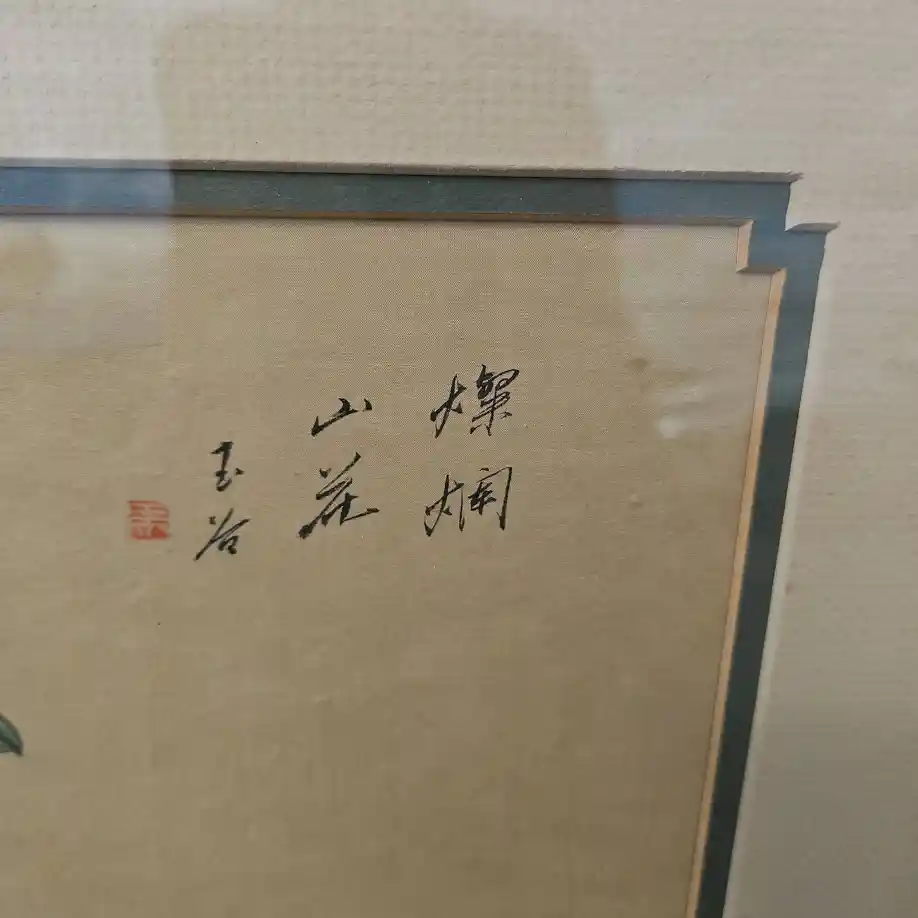 燦爛
山花
玉谷